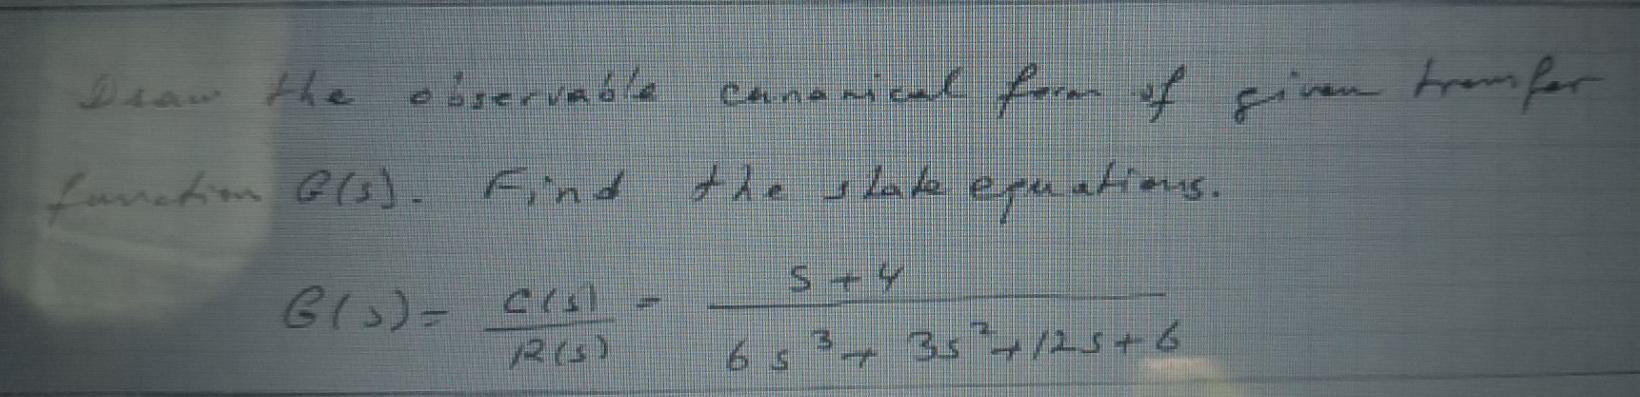 Draw the observable canonical form of given transfer
function G(s). Find the state equations.
G(s) = C(s)/R(s) = s+4/6s³+3s²+12s+6